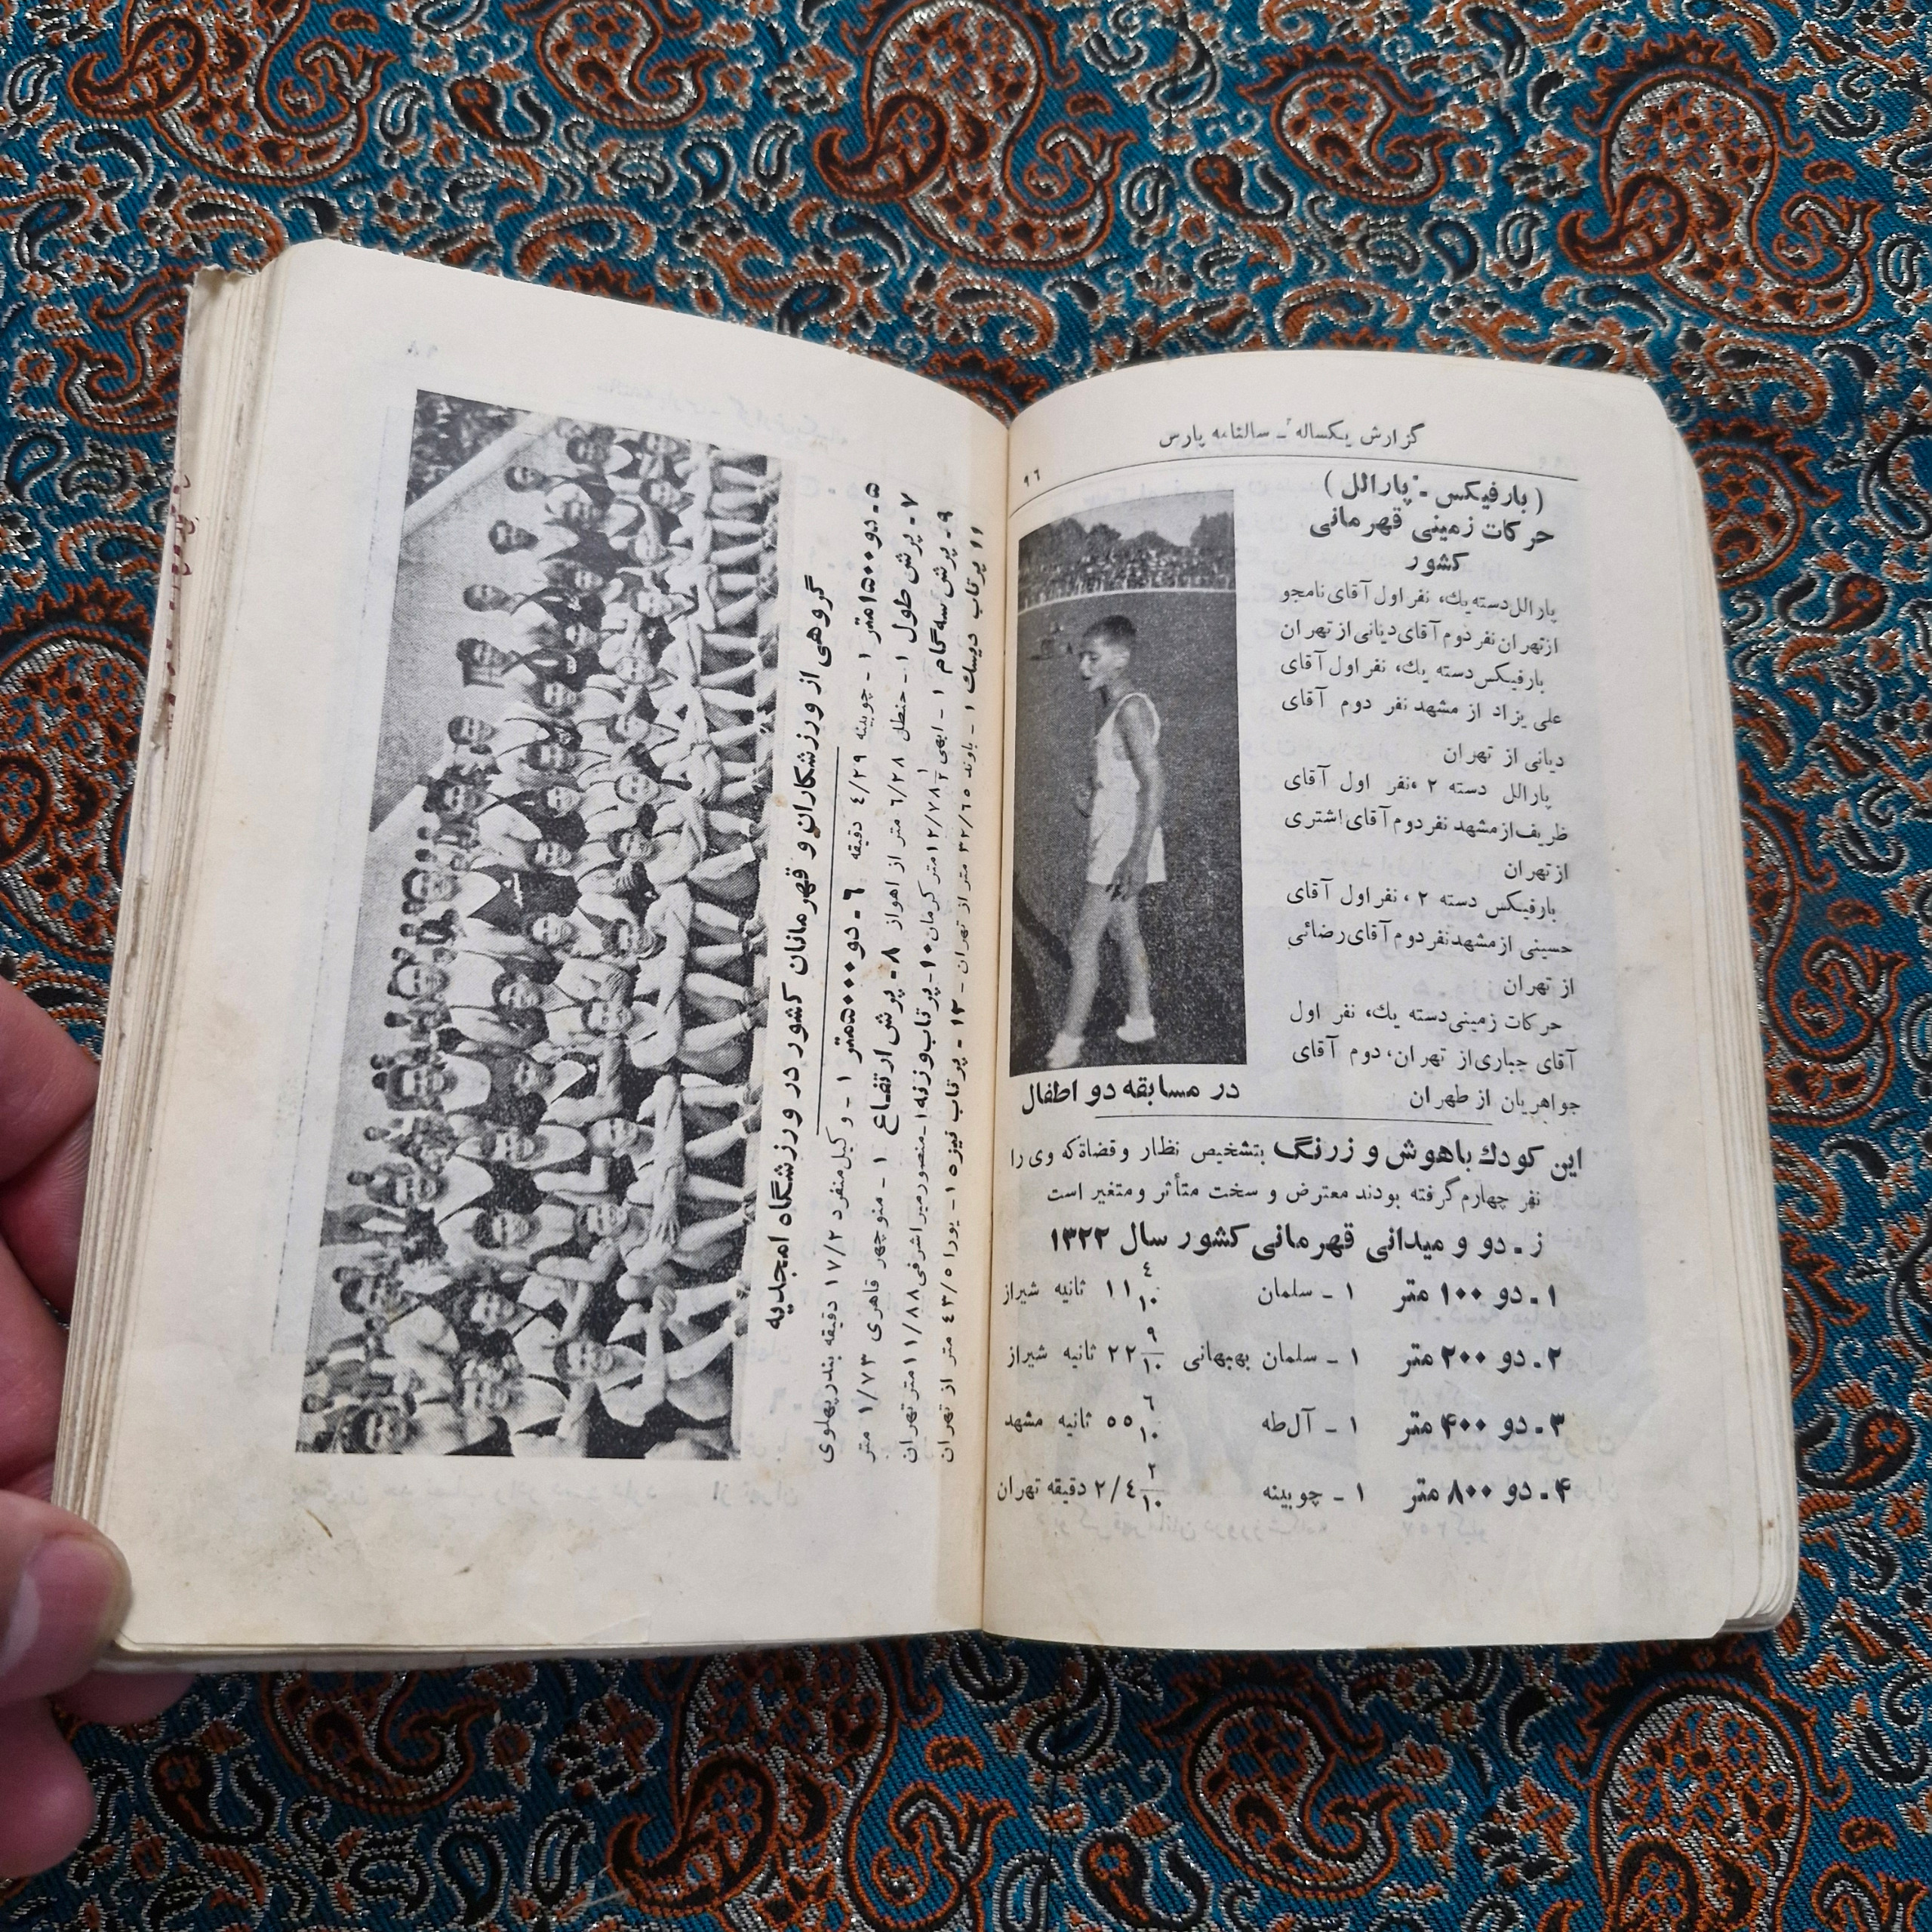 گزارش یکساله ـ سالنامه پارس
۹۶
( بارفیکس ـ پارالل )
حرکات زمینی قهرمانی
کشور
پارالل دسته یك، نفر اول آقای نامجو
از تهران نفر دوم آقای دیانی از تهران
بارفیکس دسته یك، نفر اول آقای
علی یزاد از مشهد نفر دوم آقای
دیانی از تهران
پارالل دسته ۲، نفر اول آقای
ظریف از مشهد نفر دوم آقای اشتری
از تهران
بارفیکس دسته ۲، نفر اول آقای
حسینی از مشهد نفر دوم آقای رضائی
از تهران
حرکات زمینی دسته یك، نفر اول
آقای جباری از تهران، دوم آقای
جواهریان از طهران
در مسابقه دو اطفال
این کودك باهوش و زرنگ بتشخیص نظار و قضاة که وی را
نفر چهارم گرفته بودند معترض و سخت متأثر و متغیر است
ز ـ دو و میدانی قهرمانی کشور سال ۱۳۲۲
۱ ـ دو ۱۰۰ متر ۱ ـ سلمان ۱۱ ۴/۱۰ ثانیه شیراز
۲ ـ دو ۲۰۰ متر ۱ ـ سلمان بهبهانی ۲۲ ۹/۱۰ ثانیه شیراز
۳ ـ دو ۴۰۰ متر ۱ ـ آل‌طه ۵۵ ۶/۱۰ ثانیه مشهد
۴ ـ دو ۸۰۰ متر ۱ ـ چوبینه ۲/۴ ۲/۱۰ دقیقه تهران
گروهی از ورزشکاران و قهرمانان کشور در ورزشگاه امجدیه
۵ ـ دو ۱۵۰۰ متر ۱ ـ چوبینه ۴/۲۹ دقیقه ۶ ـ دو ۵۰۰۰ متر ۱ ـ وکیل منفرد ۱۷/۲ دقیقه بندرپهلوی
۷ ـ پرش طول ۱ ـ حنظل ۶/۲۸ متر از اهواز ۸ ـ پرش ارتفاع ۱ ـ منوچهر قاهری ۱/۷۳ متر
۹ ـ پرش سه گام ۱ ـ ابهی ۱۲/۷۸ ۱/۲ متر کرمان ۱۰ ـ پرتاب وزنه ۱ ـ منصور میراشرفی ۱۱/۸۸ متر تهران
۱۱ پرتاب دیسك ۱ ـ باوند ۳۲/۶۵ متر از تهران ـ ۱۲ ـ پرتاب نیزه ۱ ـ یودرا ۴۳/۵ متر از تهران